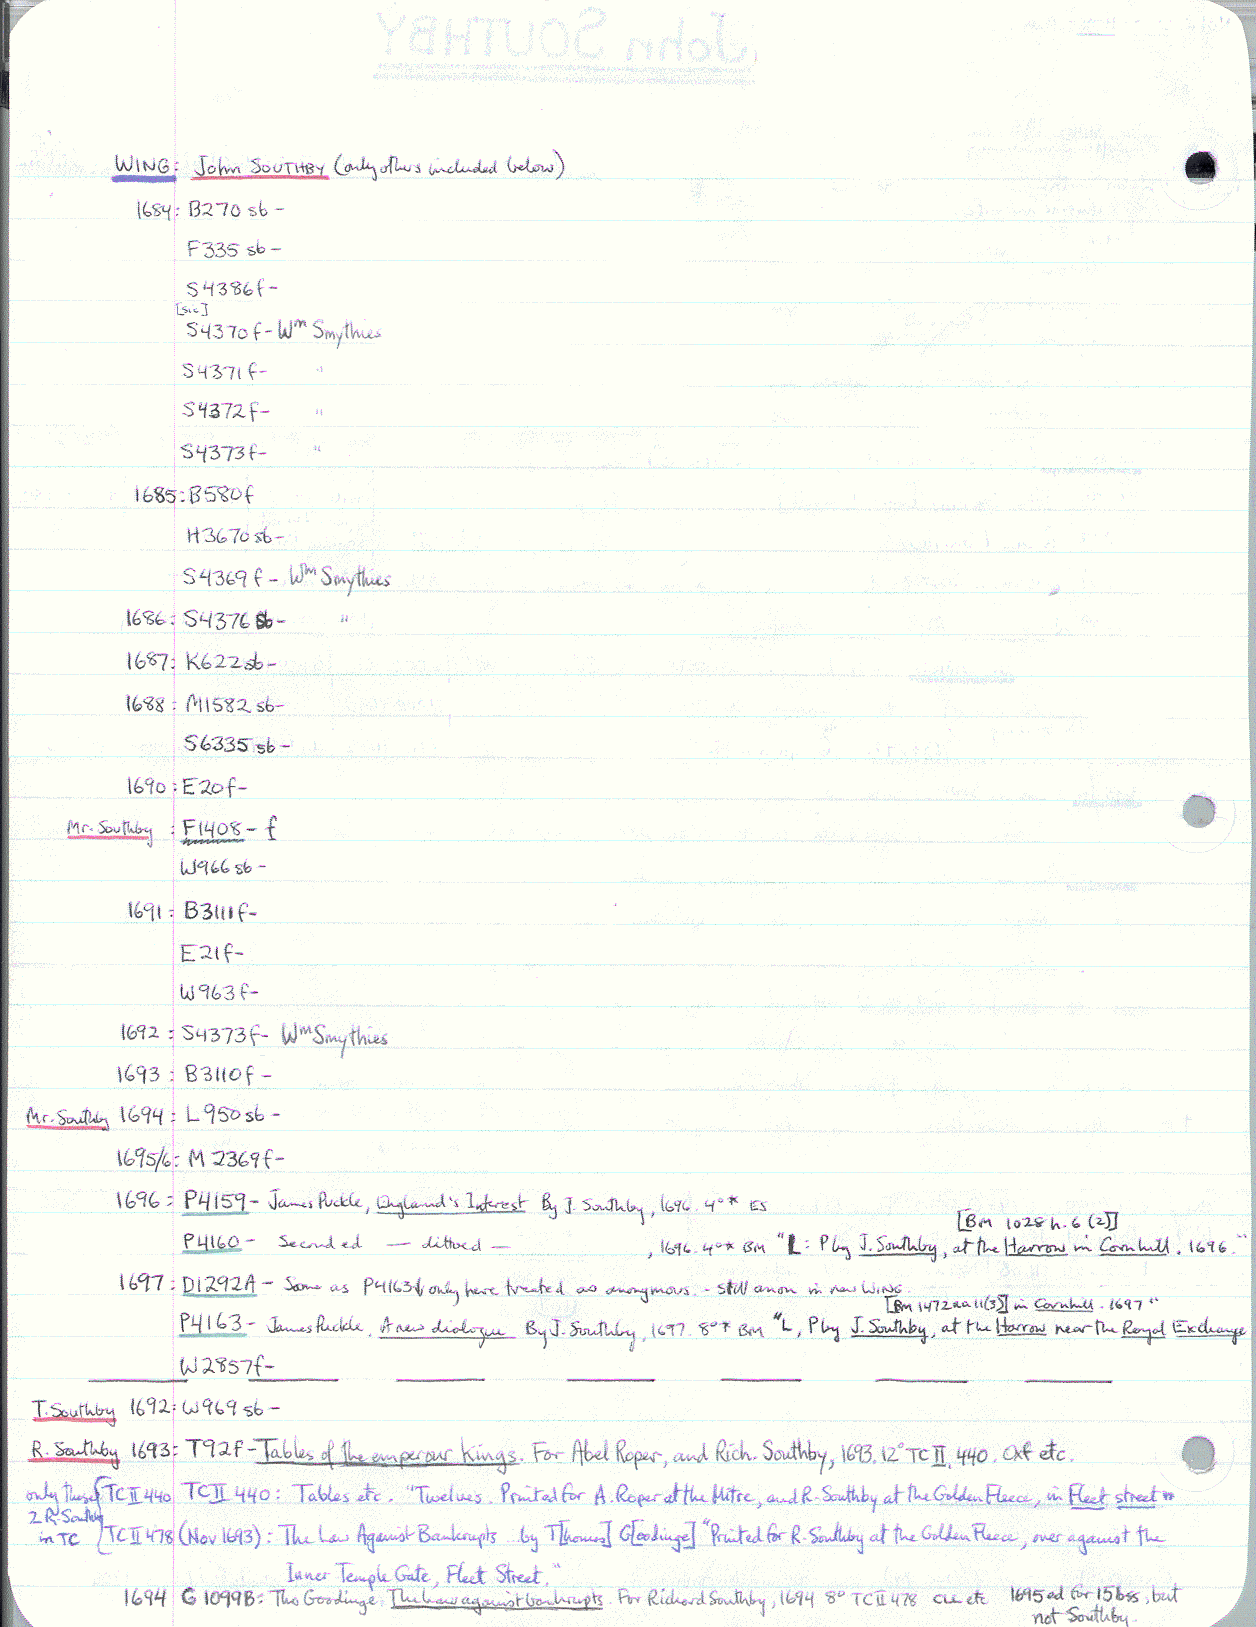 John SOUTHBY
WING: John SOUTHBY (only others included below)
1684: B270 sb -
F335 sb -
S4386f -
[sic]
S4370f - Wm Smythies
S4371f - "
S4372f - "
S4373f - "
1685: B580f
H3670 sb -
S4369f - Wm Smythies
1686: S4376 sb - "
1687: K622 sb -
1688: M1582 sb -
S6335 sb -
1690: E20f -
Mr. Southby : F1408 - f
W966 sb -
1691: B3111f -
E21f -
W963f -
1692: S4373f - Wm Smythies
1693: B3110f -
Mr. Southby 1694: L950 sb -
1695/6: M2369f -
1696: P4159 - James Puckle, England's Interest By J. Southby, 1696. 4°* ES
[BM 1028 h. 6 (2)]
P4160 - Second ed — dittoed — , 1696. 4°* BM "L: P by J. Southby, at the Harrow in Cornhill. 1696."
1697: D1292A - Same as P4163 only here treated as anonymous. - still anon in new WING.
[BM 1472 aa 11(3)] in Cornhill. 1697"
P4163 - James Puckle, A new dialogue By J. Southby, 1697. 8°* BM "L, P by J. Southby, at the Harrow near the Royal Exchange
W2857f -
T. Southby 1692: W969 sb -
R. Southby 1693: T92f - Tables of the emperour kings. For Abel Roper, and Rich. Southby, 1693. 12° TC II, 440. Oxf etc.
only these TC II 440 TC II 440: Tables etc. "Twelves. Printed for A. Roper at the Mitre, and R. Southby at the Golden Fleece, in Fleet street"
2 R. Southby
in TC TC II 478 (Nov 1693): The Law Against Bankrupts ... by T[homas] G[oodinge] "Printed for R. Southby at the Golden Fleece, over against the
Inner Temple Gate, Fleet Street."
1694 G1099B: Tho Goodinge. The law against bankrupts. For Richard Southby, 1694 8° TC II 478 CLL etc 1695 ed for 15 bss, but
not Southby.